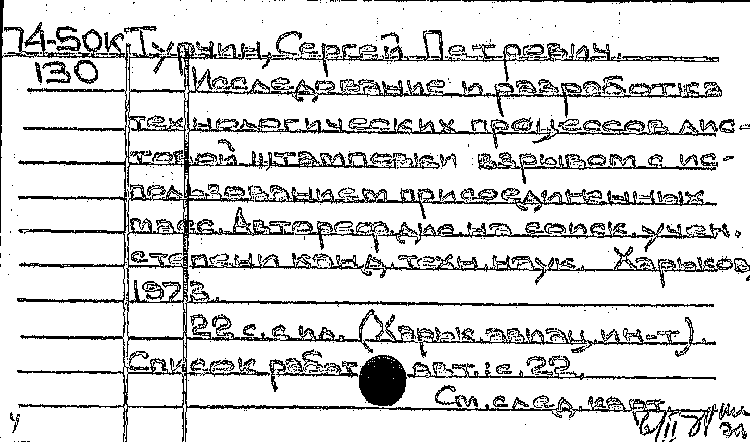 74-50к Турчин, Сергей Петрович.
130
Исследование и разработка
технологических процессов лис-
товой штамповки взрывом с ис-
пользованием присоединенных
масс. Автореф. дис. на соиск. учен.
степени канд. техн. наук. Харьков,
1973.
22 с. с ил. (Харьк. авиац. ин-т).
Список работ авт.: с. 22.
См. след. карт.